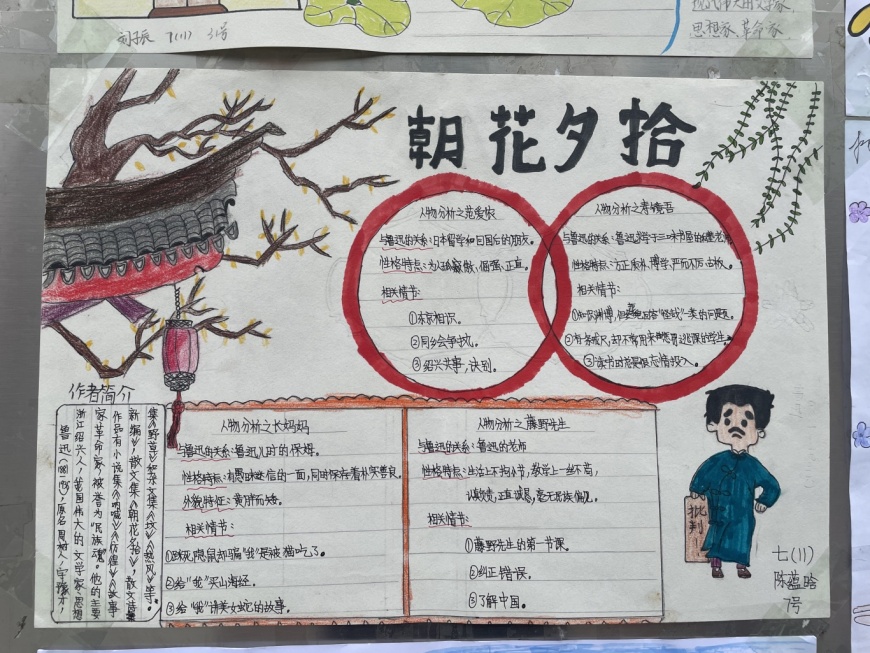 刘子辰 7(11) 31号
现代伟大的文学家、
思想家、革命家
朝花夕拾
人物分析之范爱农
与鲁迅的关系：日本留学和回国后的朋友。
性格特点：倔强、正直。
相关情节：
①东京相识。
②同乡会争吵。
③绍兴共事，诀别。
人物分析之寿镜吾
与鲁迅的关系：鲁迅求学于三味书屋的
性格特点：方正、质朴、博学、严而不厉
相关情节：
①知识渊博，
②有条戒尺，却不常用
③读书时总是很忘情投入。
作者简介
鲁迅，原名周树人，字豫才，
浙江绍兴人，是国伟大的文学家、思想
家、革命家，被誉为“民族魂”。他的主要
作品有小说集《呐喊》《彷徨》《故事
新编》，散文集《朝花夕拾》，散文诗
集《野草》和杂文集《坟》《热风》等。
人物分析之长妈妈
与鲁迅的关系：鲁迅儿时的保姆。
性格特点：有愚昧迷信的一面，同时保存着朴实善良。
外貌特征：黄胖而矮。
相关情节：
①踩死隐鼠却骗“我”是被猫吃了。
②给“我”买山海经。
③给“我”讲美女蛇的故事。
人物分析之藤野先生
与鲁迅的关系：鲁迅的老师
性格特点：生活上不拘小节，教学上一丝不苟，
认真负责，正直诚恳，毫无民族偏见。
相关情节：
①藤野先生的第一节课。
②纠正错误。
③了解中国。
批
判
七(11)
陈蕴晗
7号